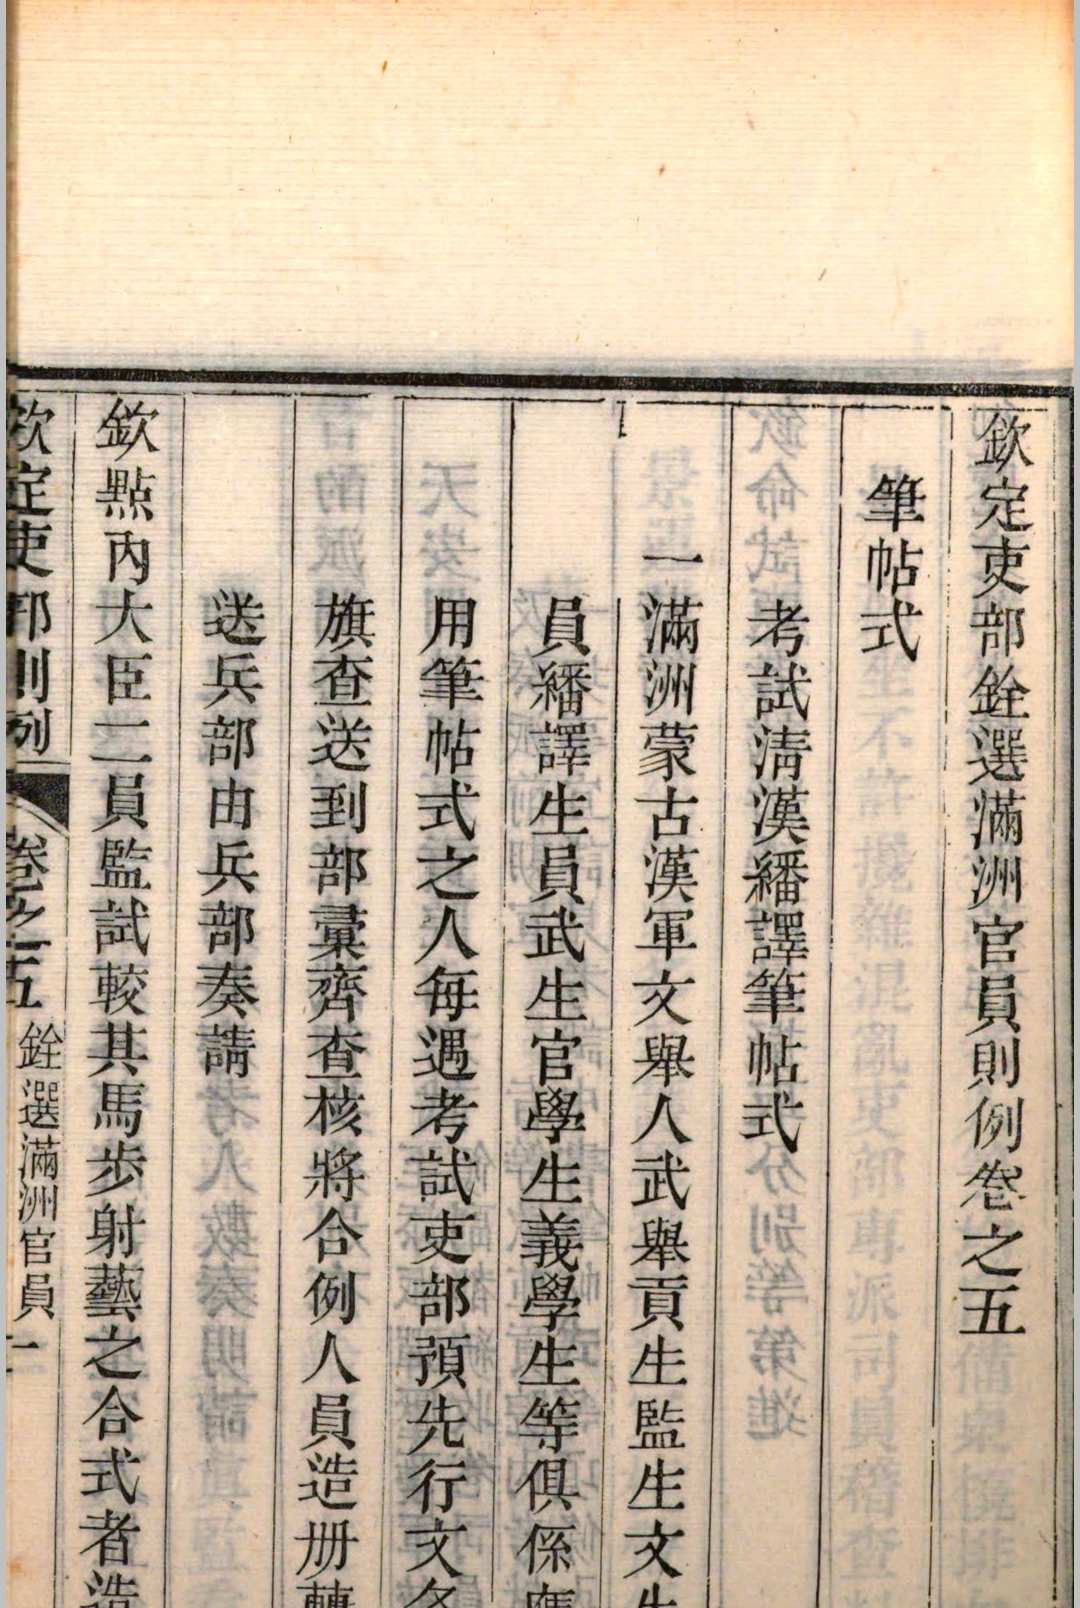 欽定吏部銓選滿洲官員則例卷之五
筆帖式
考試淸漢繙譯筆帖式
一滿洲蒙古漢軍文舉人武舉貢生監生文生
員繙譯生員武生官學生義學生等俱係應
用筆帖式之人每遇考試吏部預先行文各
旗查送到部彙齊查核將合例人員造册轉
送兵部由兵部奏請
欽點內大臣二員監試較其馬步射藝之合式者造
欽定吏部則例
卷之五
銓選滿洲官員
一